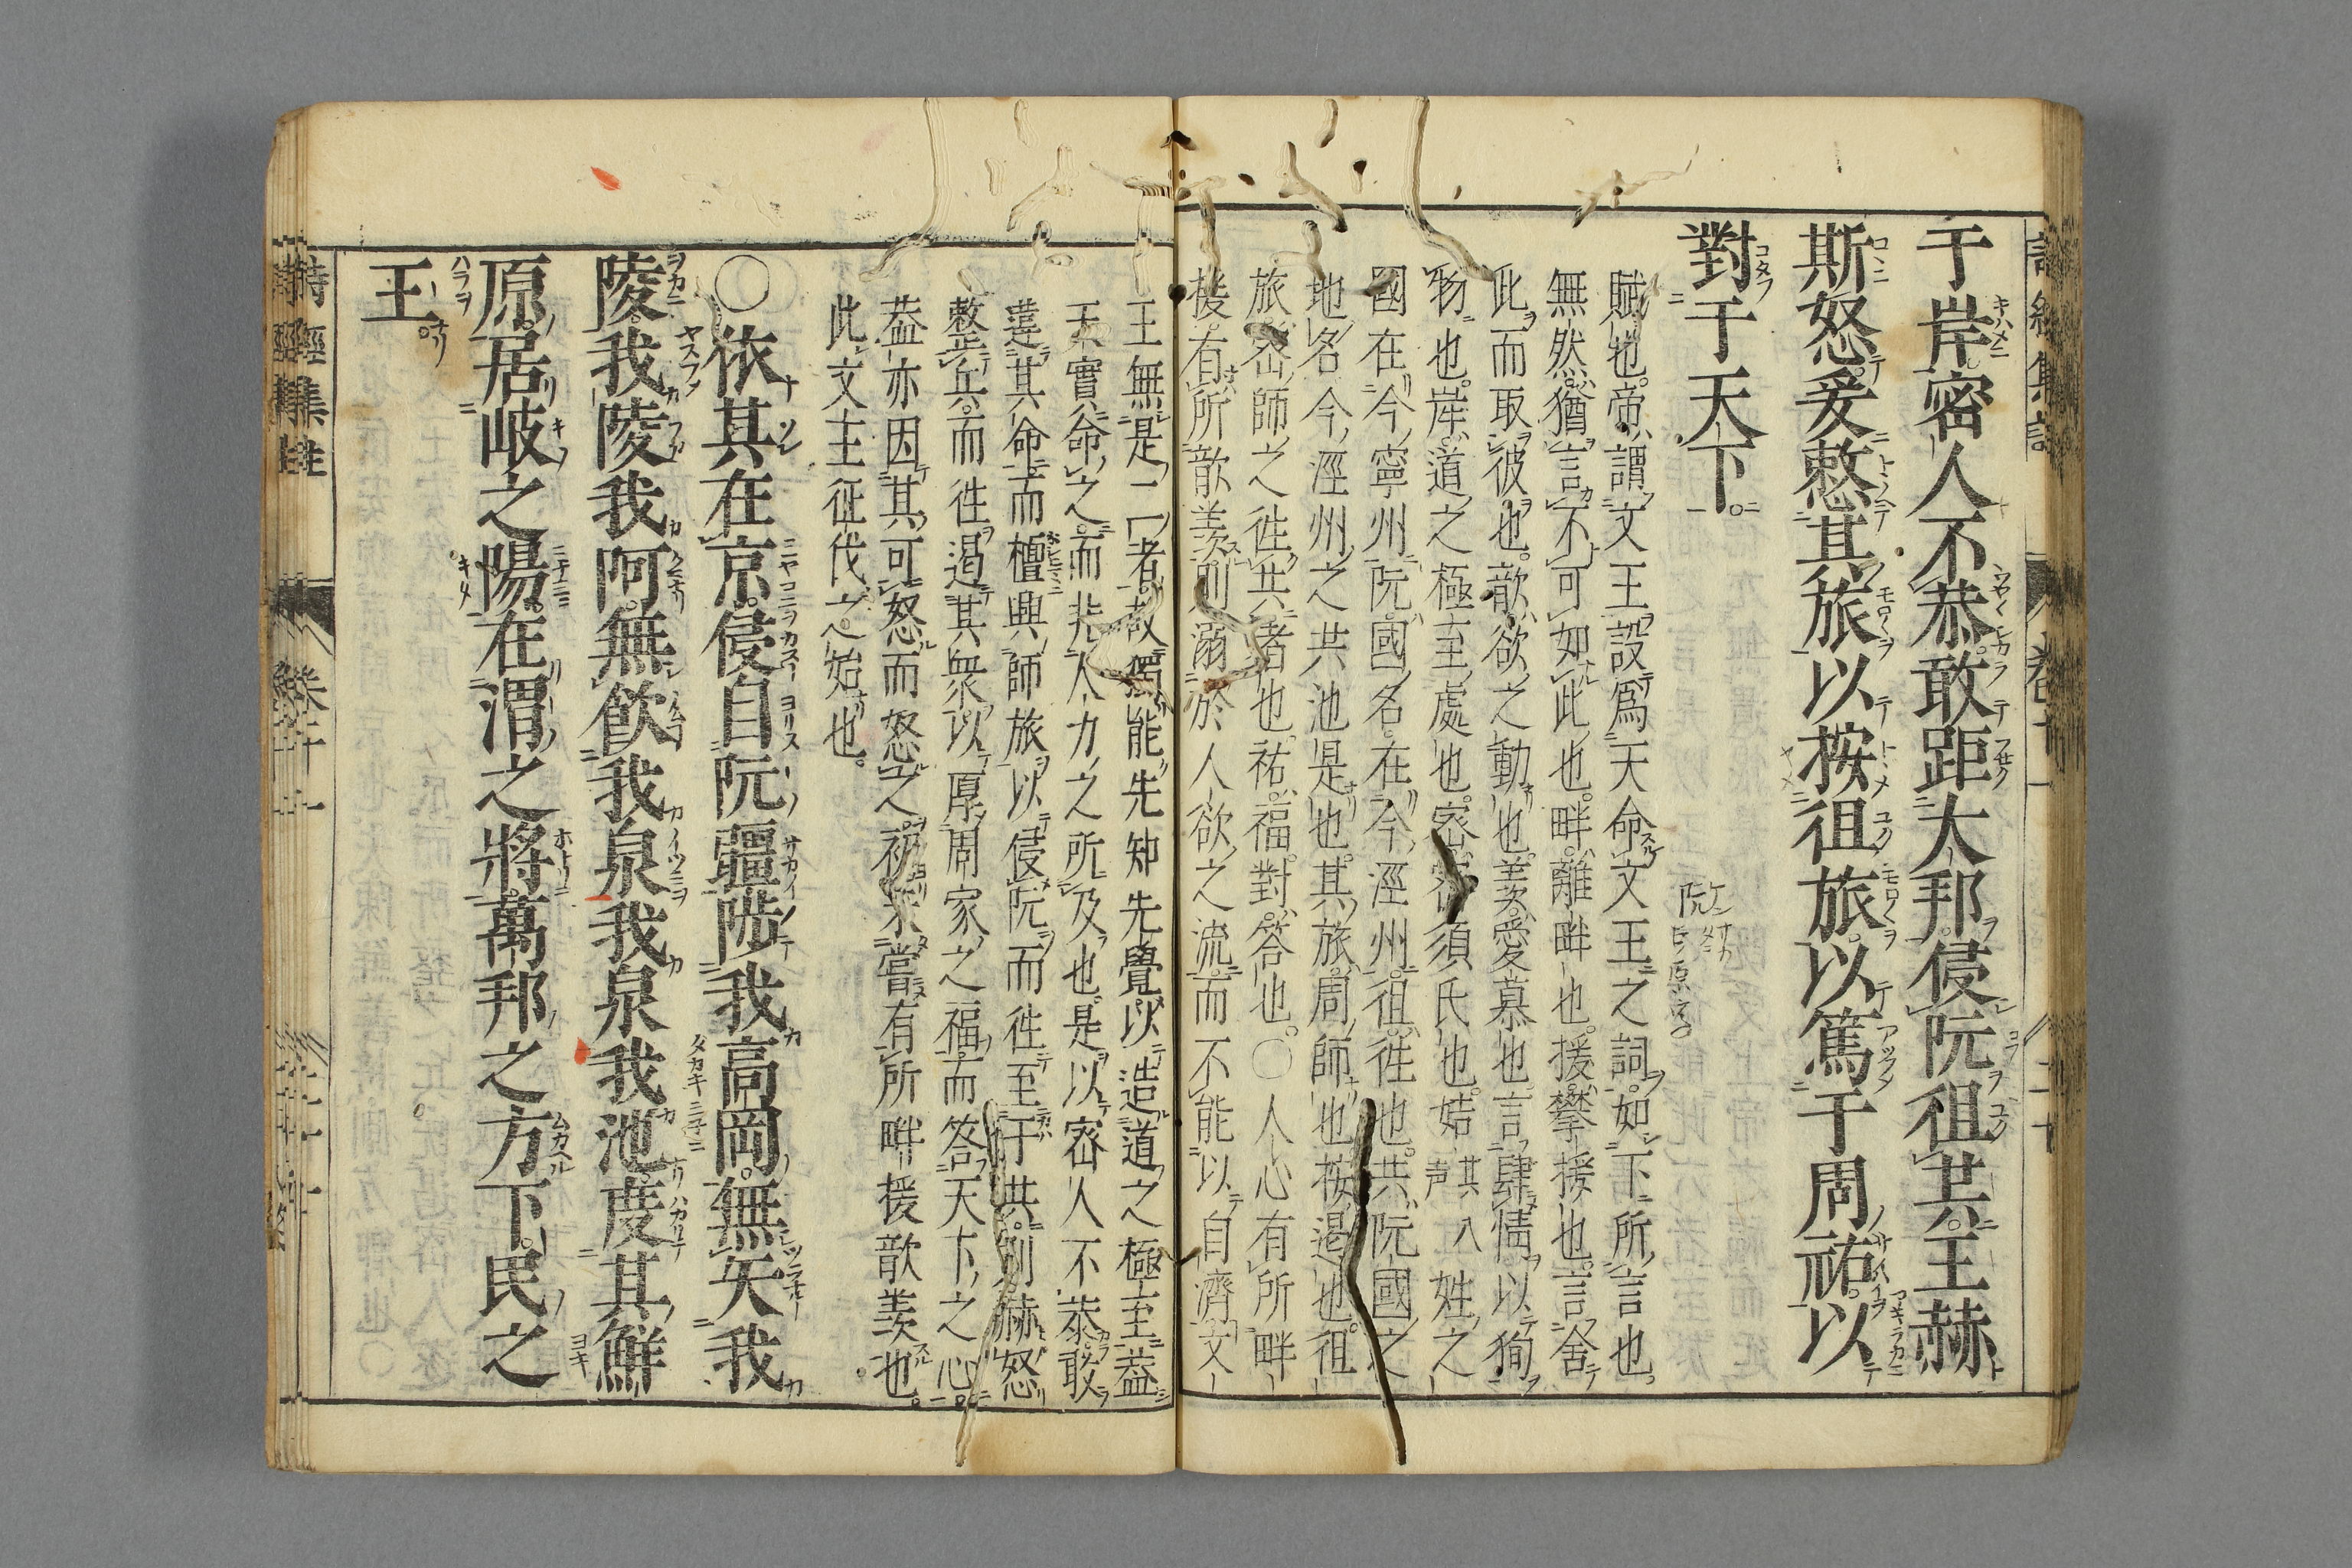 于岸密人不恭敢距大邦侵阮徂共王赫
斯怒爰整其旅以按徂旅以篤于周祜以
對于天下
賦也帝謂文王設爲天命文王之詞如下所言也
無然猶言不可如此也畔離畔也援攀援也言舍
此而取彼也歆欲之動也羨愛慕也言肆情以狥
物也岸道之極至處也密密須氏也姞姓之
國在今寧州阮國名在今涇州徂徃也共阮國之
地名今涇州之共池是也其旅周師也按遏也徂
旅密師之徃共者也祜福對答也○人心有所畔
援有所歆羨則溺於人欲之流而不能以自濟文
王無是二者故獨能先知先覺以造道之極至蓋
天實命之而非人力之所及也是以密人不恭敢
違其命而擅興師旅以侵阮而徃至于共則赫怒
整兵而徃遏其衆以厚周家之福而答天下之心
蓋亦因其可怒而怒之初未嘗有所畔援歆羨也
此文王征伐之始也
○依其在京侵自阮疆陟我高岡無矢我
陵我陵我阿無飮我泉我泉我池度其鮮
原居岐之陽在渭之將萬邦之方下民之
王
詩經集註
卷十一